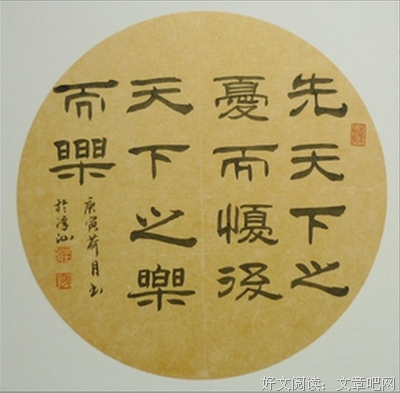 先天下之
憂而懮後
天下之樂
而樂
庚寅荷月书
於
好文阅读：文章吧网